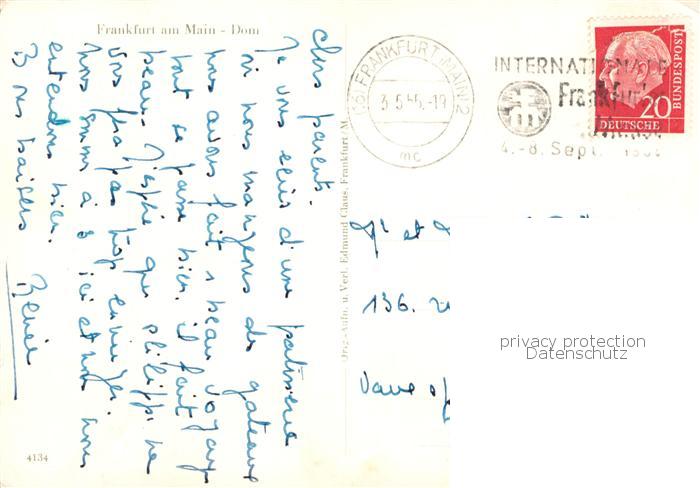 Frankfurt am Main - Dom
chers parents.
Je vous écris d'une patisserie
où nous mangeons des gateaux
nous avons fait 1 beau voyage
tout se passe bien. il fait
beau. J'espère que philippe ne
vous fera pas trop enrager.
nous sommes à 3 ici et nous nous
entendons bien.
Bons baisers
Renée
4134
Orig.-Aufn. u. Verl. Edmund Claus, Frankfurt/M.
(16) FRANKFURT (MAIN) 2
3.5.55.-19
mc
INTERNATIONALE
Frankfurter
4.-8. Sept.
20
DEUTSCHE
BUNDESPOST
Mr et
136.
privacy protection
Datenschutz